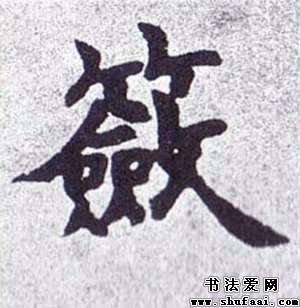 籢
书法爱网
www.shufaai.com